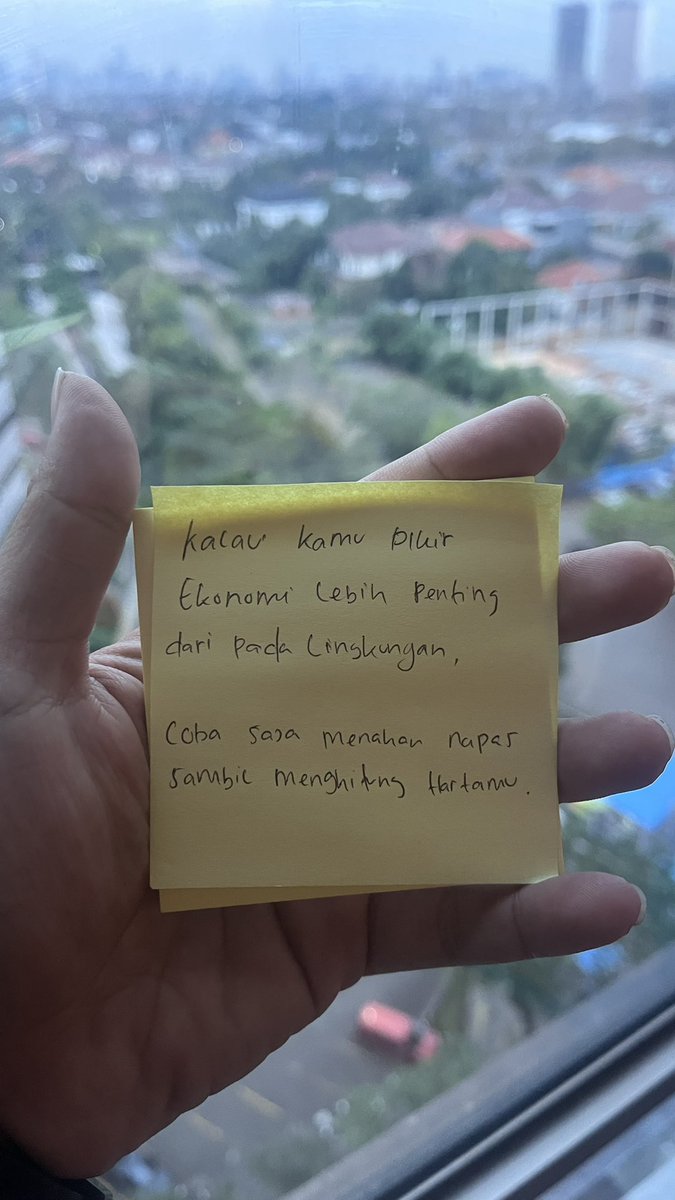 Kalau kamu pikir
Ekonomi lebih Penting
dari pada Lingkungan,
Coba saja menahan napas
sambil menghitung Hartamu.